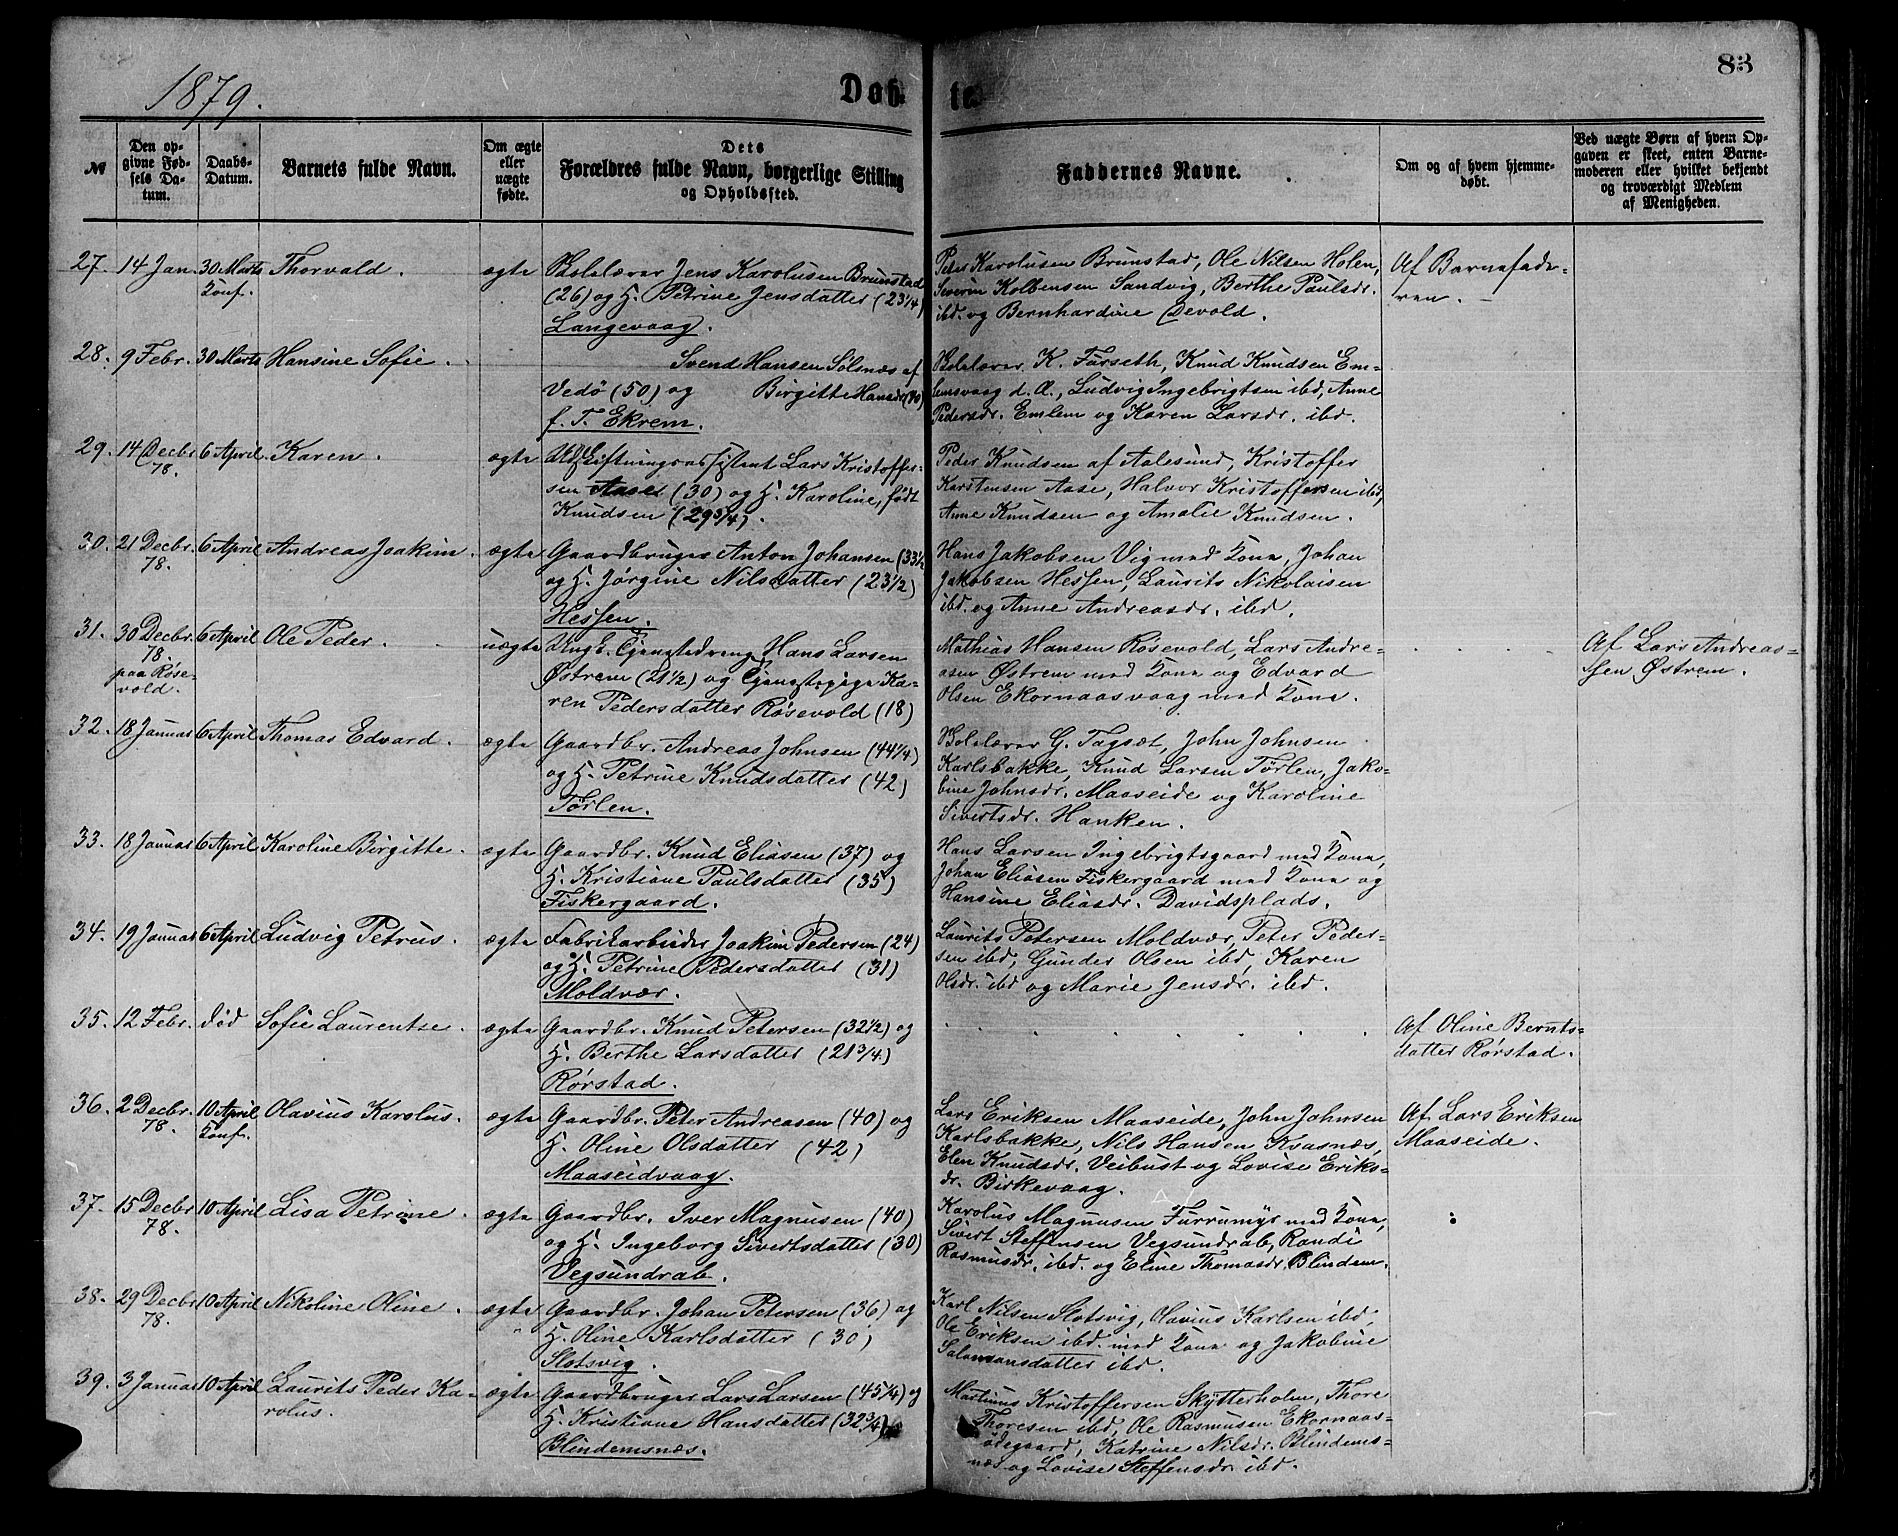 1879.
Døbte.
83
№
Den opgivne Fødsels Datum.
Daabs-Datum.
Barnets fulde Navn.
Om ægte eller uægte fødte.
Dets Forældres fulde Navn, borgerlige Stilling og Opholdssted.
Faddernes Navne.
Om og af hvem hjemmedøbt.
Ved uægte Børn af hvem Opgaven er skeet, enten Barnemoderen eller hvilket bekjendt og troværdigt Medlem af Menigheden.
27. 14 Jan. 30 Marts Thorvald. ægte Skolelærer Jens Karolusen Brunstad
Konf. (26) og H. Petrine Jensdatter (23 1/4)
Langevaag.
Peter Karolusen Brunstad, Ole Nilsen Holen,
Severin Kolbensen Sandvig, Berthe Paulsdr.
ibd. og Bernhardine Devold.
Af Barnefade-
ren.
28. 9 Febr. 30 Marts Hansine Sofie. Svend Hansen Solsnæs af
Vedø (50) og Birgitte Hansdr (40)
f. T. Ekrem.
Skolelærer K. Furseth, Knud Knudsen Em-
lemsvaag d. A., Ludvig Ingebrigtsen ibd, Anne
Pedersdr. Emlem og Karen Larsdr. ibd.
29. 14 Decbr. 6 April. Karen. ægte Udskiftningsassistent Lars Kristoffer-
78. sen Aase (30) og H. Karoline, født
Knudsen (29 3/4).
Peder Knudsen af Aalesund, Kristoffer
Karstensen Aase, Halvor Kristoffersen ibd,
Anne Knudsen og Amalie Knudsen.
30. 21 Decbr. 6 April Andreas Joakim. ægte Gaardbruger Anton Johansen (33 1/2)
78. og H. Jørgine Nilsdatter (23 1/2)
Hessen.
Hans Jakobsen Vig med Kone, Johan
Jakobsen Hessen, Laurits Nikolaisen
ibd. og Anne Andreasdr. ibd.
31. 30 Decbr. 6 April Ole Peder. uægte Ungk. Tjenestedreng Hans Larsen
78. Østrem (21 1/2) og Tjenestepige Ka-
paa Røse- ren Pedersdatter Røsevold (18)
vold.
Mathias Hansen Røsevold, Lars Andre-
asen Østrem med Kone og Edvard
Olsen Ekornaasvaag med Kone.
Af Lars Andreas-
sen Østrem.
32. 18 Januar 6 April Thomas Edvard. ægte Gaardbr. Andreas Johnsen (44 1/4)
og H. Petrine Knudsdatter (42)
Tørlen.
Skolelærer G. Tagsæt, John Johnsen
Karlsbakke, Knud Larsen Tørlen, Jako-
bine Johnsdr. Maaseide og Karoline
Sivertsdr. Hanken.
33. 18 Januar 6 April Karoline Birgitte. ægte Gaardbr. Knud Eliasen (37) og
H. Kristiane Paulsdatter (35)
Fiskergaard.
Hans Larsen Ingebrigtsgaard med Kone,
Johan Eliasen Fiskergaard med Kone og
Hansine Eliasdr. Davidsplads.
34. 19 Januar 6 April Ludvig Petrus. ægte Fabrikarbeider Joakim Pedersen (24)
og H. Petrine Pedersdatter (31)
Moldvær.
Laurits Petersen Moldvær, Peter Peder-
sen ibd, Gunder Olsen ibd, Karen
Olsdr. ibd og Marie Jensdr. ibd.
35. 12 Febr. død Sofie Laurentse. ægte Gaardbr. Knud Petersen (32 1/2) og
H. Berthe Larsdatter (21 3/4)
Rørstad.
Af Oline Bernts-
datter Rørstad.
36. 2 Decbr. 10 April Olavius Karolus. ægte Gaardbr. Peter Andreasen (40) og
78. Konf. H. Oline Olsdatter (42)
Maaseidvaag.
Lars Eriksen Maaseide, John Johnsen
Karlsbakke, Nils Hansen Kvasnæs,
Elen Knudsdr. Veibust og Lovise Eriks-
dr. Birkevaag.
Af Lars Eriksen
Maaseide.
37. 15 Decbr 10 April Lisa Petrine. ægte Gaardbr. Iver Magnusen (40)
78. og H. Ingeborg Sivertsdatter (30)
Vegsundrab.
Karolus Magnusen Furrumyr med Kone,
Sivert Steffensen Vegsundrab, Randi
Rasmusdr. ibd. og Eline Thomasdr. Blindem.
38. 29 Decbr 10 April Nikoline Oline. ægte Gaardbr. Johan Petersen (36) og
78. H. Oline Karlsdatter (30)
Slotsvig.
Karl Nilsen Slotsvig, Olavius Karlsen ibd,
Ole Eriksen ibd. med Kone og Jakobine
Salomonsdatter ibd.
39. 3 Januar 10 April Laurits Peder Ka- ægte Gaardbruger Lars Larsen (45 1/4) og
rolus. H. Kristiane Hansdatter (32 3/4)
Blindemsnæs.
Martinus Kristoffersen Skytterholm, Thore
Thoresen ibd, Ole Rasmusen Ekornaas-
ødegaard, Katrine Nilsdr. Blindems-
næs og Lovise Steffensdr. ibd.